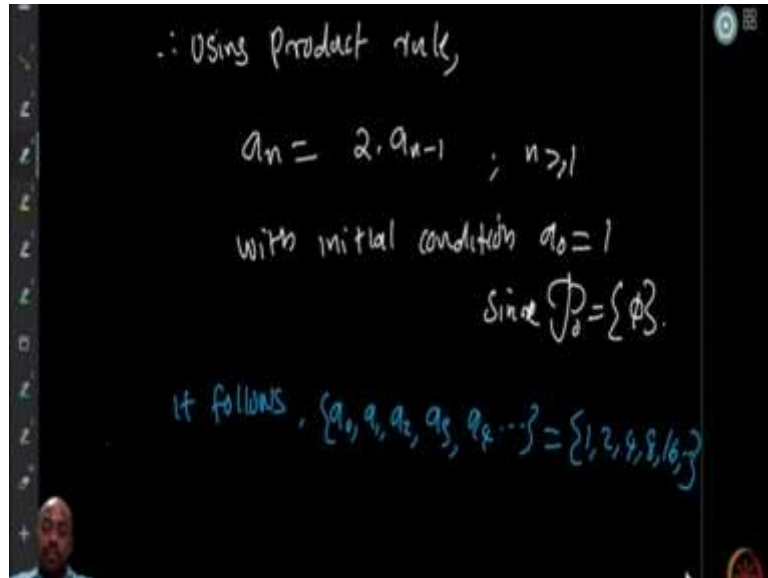 ∴ Using Product rule,
aₙ = 2.aₙ₋₁ ; n ≥ 1
with initial condition a₀ = 1
since 𝒫₀ = {ϕ}.
It follows, {a₀, a₁, a₂, a₃, a₄ ...} = {1, 2, 4, 8, 16, }